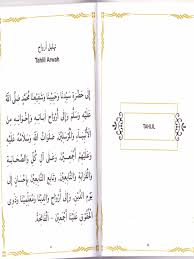 تهليل أرواح
Tahlil Arwah
إلى حضرة سيدنا وحبيبنا وشفيعنا محمد صلى الله
عليه وسلم وإلى أرواح آبائه وإخوانه من
الأنبياء والمرسلين صلوات الله وسلامه عليه
وعليهم أجمعين وآل كل والصحابة
والقرابة والتابعين وتابع التابعين بإحسان إلى
يوم الدين وإلى أرواح والدينا ومعلمينا وذوي
الحقوق علينا أجمعين - الفاتحة
TAHLIL